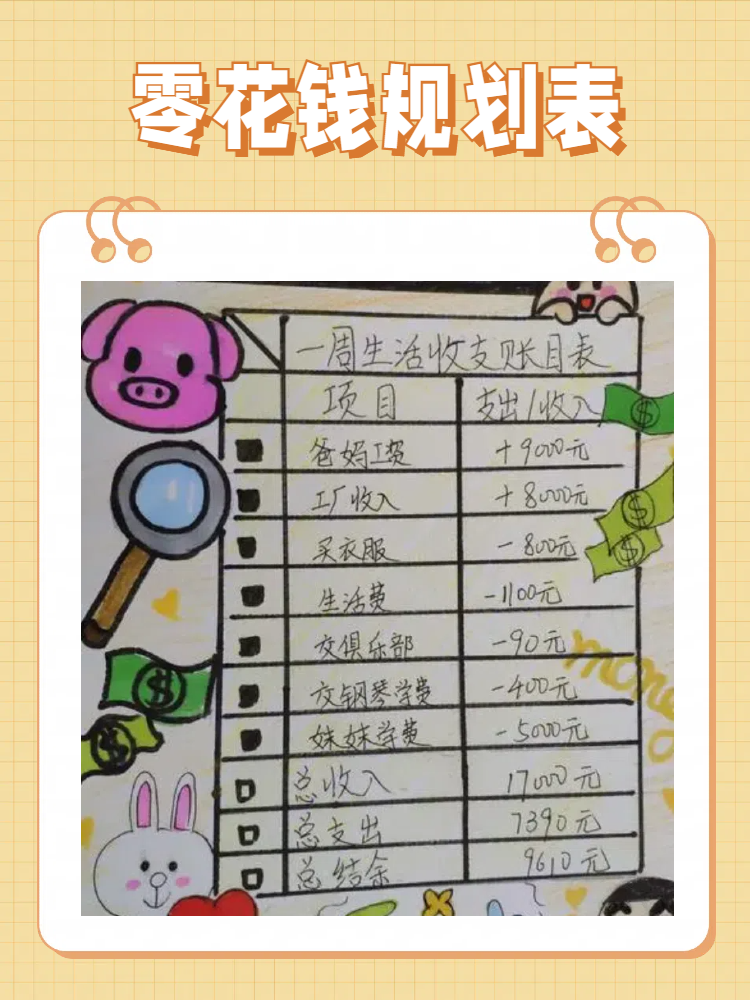 零花钱规划表
一周生活收支账目表
项目 支出/收入
爸妈工资 +9000元
工厂收入 +8000元
买衣服 -800元
生活费 -1100元
交俱乐部 -90元
交钢琴学费 -400元
妹妹学费 -5000元
总收入 17000元
总支出 7390元
总结余 9610元
$
$
$
$
$
money